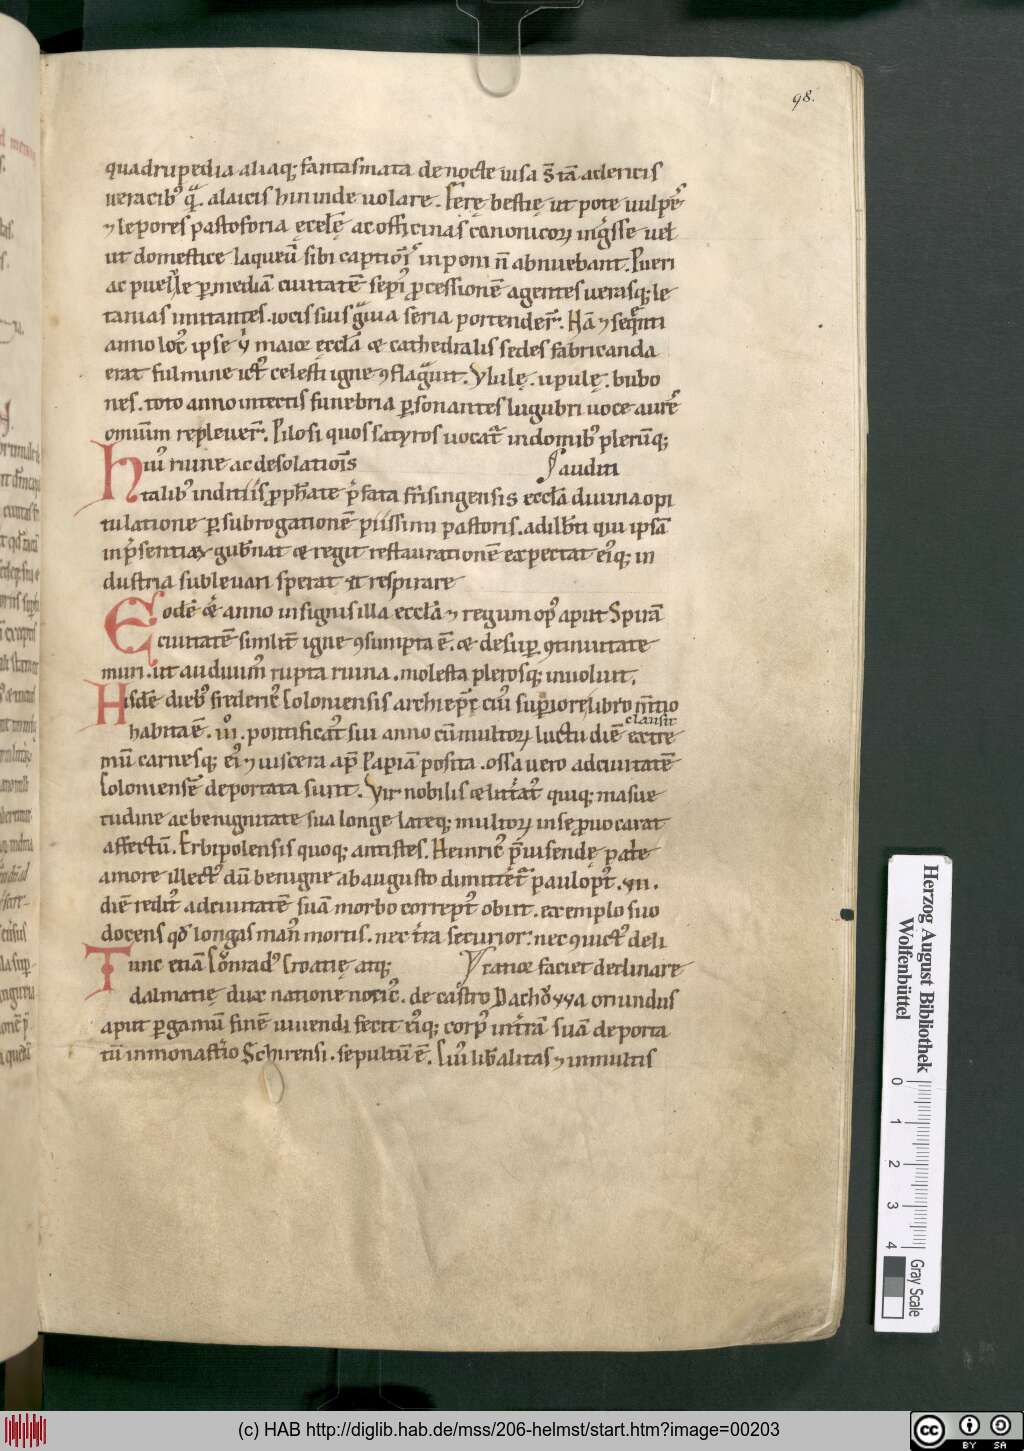 98.
quadrupedia aliaq; fantasmata de nocte uisa s̄ tā a clericis
ueracib᾽ qᵃ̄. a laicis hin inde uolare. Ferę bestię ut pote uulpes
⁊ lepores pastoforia ęcclę̄ ac officinas canonicoꝝ ingͥsse uel
ut domestice laqueū sibi captiōis inponi n̄ abnuebant. Pueri
ac puellę ꝑ mediā ciuitatē sepi᾽ ꝓcessionē agentes uerasq; le
tanias imitantes. iocis suis gͣuia seria portender̄. Hā ⁊ seq̄nti
anno loc᾽ ipse ubi maior ęcclā & cathedralis sedes fabricanda
erat fulmine ict᾽ celesti igne ꝯflagͣuit. Vlulę. upupę. bubo
nes. toto anno in tectis funebria ꝑsonantes lugubri uoce aures
omnium repleuer̄. Pilosi quos satyros uocant in domib᾽ plerūq;
Hiu᾽ ruine ac desolatiōis auditi
talib᾽ inditiis ꝓph̄ate p̄fata frisingensis ecclā diuina opi
tulatione ꝑ subrogationē piissimi pastoris. adilb̄ti qui ipsā
inp̄sentiaꝝ gub̄nat & regit restaurationē expectat ei᾽q; in
dustria subleuari sperat et respirare
Eodē & anno insignis illa ecclā ⁊ regum op᾽ aput Spirā
ciuitatē simlit̄ igne ꝯsumpta ē. & desuꝑ ꝯtinuitate
muri. ut audiuim᾽ rupta ruina. molesta plerosq; inuoluit.
Hisdē dieb᾽ frideric᾽ Coloniensis archiep̄c cui᾽ suꝑiore libro m̄tio
clausit
habita ē. iiii. pontificat᾽ sui anno cū multoꝝ luctu diē extre
mū carnesq; ei᾽ ⁊ uiscera ap̄ Papiā posita. ossa uero ad ciuitatē
Coloniensē deportata sunt. Vir nobilis & litͣat᾽ quiq; masue
tudine ac benignitate sua longe lateq; multoꝝ in se ꝓuocarat
affectū. Erbipolensis quoq; antistes. Heinric᾽ p̄uisendę pat̄e
amore illect᾽ dū benigne ab augusto dimittēt᾽ paulo p᾽t. vii.
diē redit᾽ ad ciuitatē suā morbo corrept᾽ obiit. exemplo suo
docens qd̄ longas man᾽ mortis. nec tͣra securior: nec quiet᾽ deli
Tunc etiā Cōnrad᾽ Croatię atq; ratior faciet declinare
dalmatię dux natione noric᾽. de castro Dachovva oriundus
aput ꝑgamū finē uiuendi fecit ei᾽q; corp᾽ in tͣrā suā deporta
tū in monastͥio Schirensi. sepultū ē. Cui᾽ lib̄alitas ⁊ in multis
Herzog August Bibliothek
Wolfenbüttel
0 1 2 3 4
Gray Scale
(c) HAB http://diglib.hab.de/mss/206-helmst/start.htm?image=00203
cc BY SA